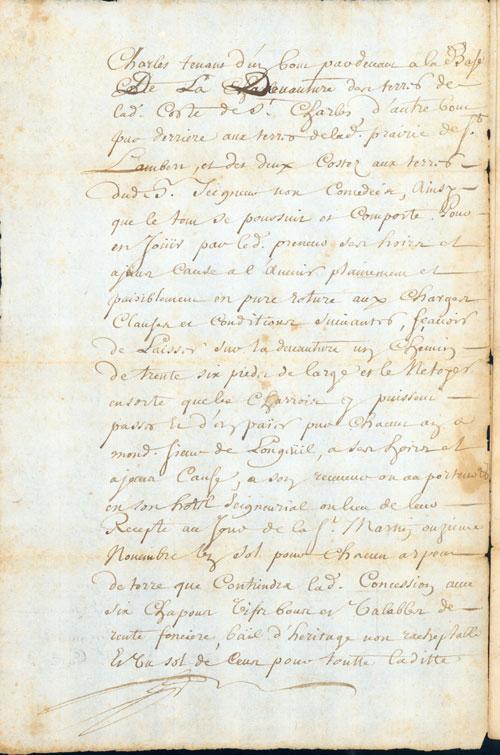 Charles tenans d'un bout pardevant a la Base
De La devanture des terres de
lad. Coste de St. Charles d'autre bout
par derriere aux terres de lad. prairie de St.
Lambert, et des deux Costez aux terres
dud. S. Seigneur non Concedées, Ainsy
que le tout se poursuit et Comporte. Pour
en Joüir par led. preneur ses hoirs et
ajans Cause a l'avenir plainement et
paisiblement en pure roture aux Charges
Clauses et Conditions suivantes, scavoir
de Laisser sur la devanture un Chemin
de trente six pieds de large et le Netoyer
ensorte que les Charrois y puissent
passer Et d'en païer par Chacun an a
mond. sieur de Longüeil, a ses hoirs et
ajans Cause, a son receveur ou au porteur
en son hotel Seigneurial ou lieu de leur
Recepte au Jour de la St. Martin onzieme
Novembre un sol pour Chacun arpent
de terre que Contiendra lad. Concession, avec
six Chapons vifs bons et valables de
rente fonciere, bail d'heritage non rachetable
Et un sol de Cens pour toutte laditte